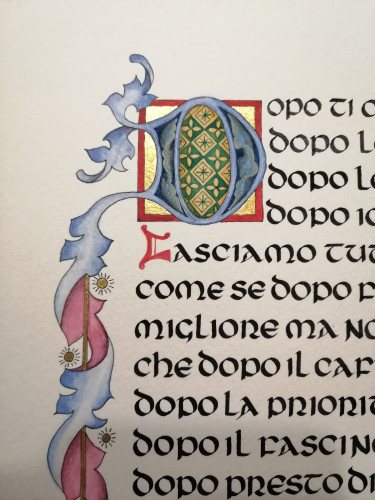 DOPO TI
DOPO
DOPO
DOPO
LASCIAMO TUT
COME SE DOPO
MIGLIORE MA NO
CHE DOPO IL CAF
DOPO LA PRIORIT
DOPO IL FASCIN
DOPO PRESTO DI